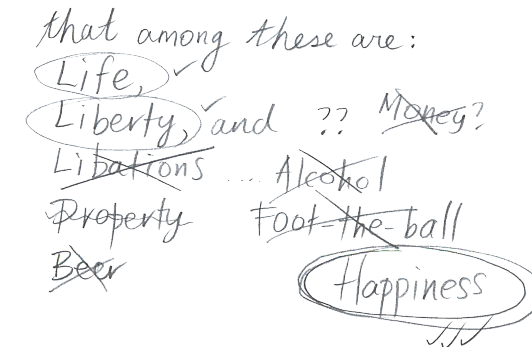 that among these are:
Life,
Liberty, and ?? Money?
Libations .... Alcohol
Property Foot-the-ball
Beer
Happiness